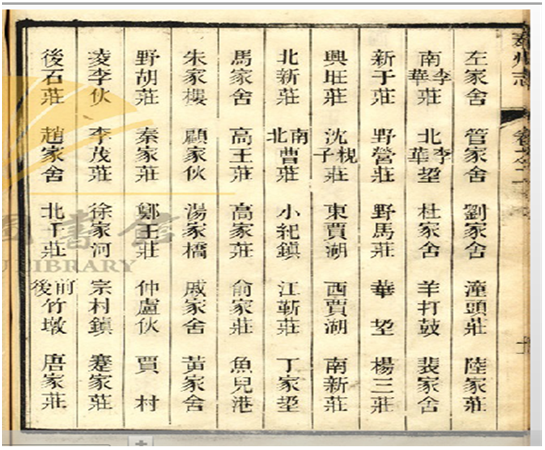 左家舍 管家舍 劉家舍 潼頭莊 陸家莊
南李華莊 北李華垡 杜家舍 羊打鼓 裴家舍
新于莊 野營莊 野馬莊 華垡 楊三莊
興旺莊 沈子莊 東賈湖 西賈湖 南新莊
北新莊 南北曹莊 小紀鎮 江蘄莊 丁家垡
馬家舍 高王莊 高家莊 俞家莊 魚兒港
朱家樓 顧家伙 湯家橋 戚家舍 黃家舍
野胡莊 秦家莊 鄭王莊 仲盧伙 賈村
凌李伙 李茂莊 徐家河 宗村鎮 蹇家莊
後石莊 趙家舍 北千莊 前後竹墩 唐家莊
書館
LIBRARY